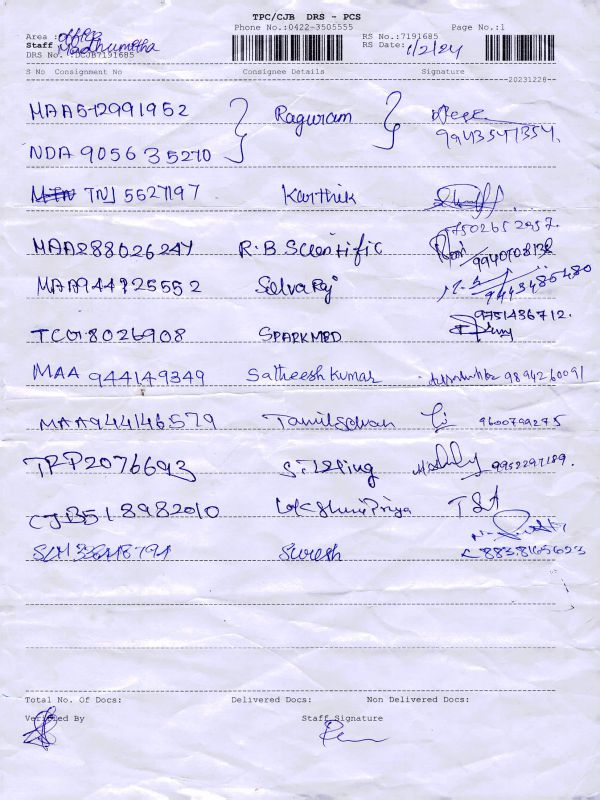 TPC/CJB DRS - PCS
Phone No.:0422-3505555 Page No.:1
Area : office RS No.:7191685
Staff Madhumitha RS Date: 1/2/24
DRS No. :DCJB7191685
S No Consignment No Consignee Details Signature
20231228
MAA542991952 Raguram
9943547354.
NDA 905635270
TNJ 5527197 Karthik
7502652057.
MAA288026247 R.B Scientific
9940708138
MAA944725552 Selvaraj
9443485480
9751436712.
TCO18026908 SPARKMED
MAA 944149349 Satheesh kumar 9894260091
MAA944146579 Tamilselvan 9600799275
TRP2076693 9952297189.
CJB518982010 Lakshmi Priya
Suresh
8838165623
Total No. Of Docs: Delivered Docs: Non Delivered Docs:
Verified By Staff Signature